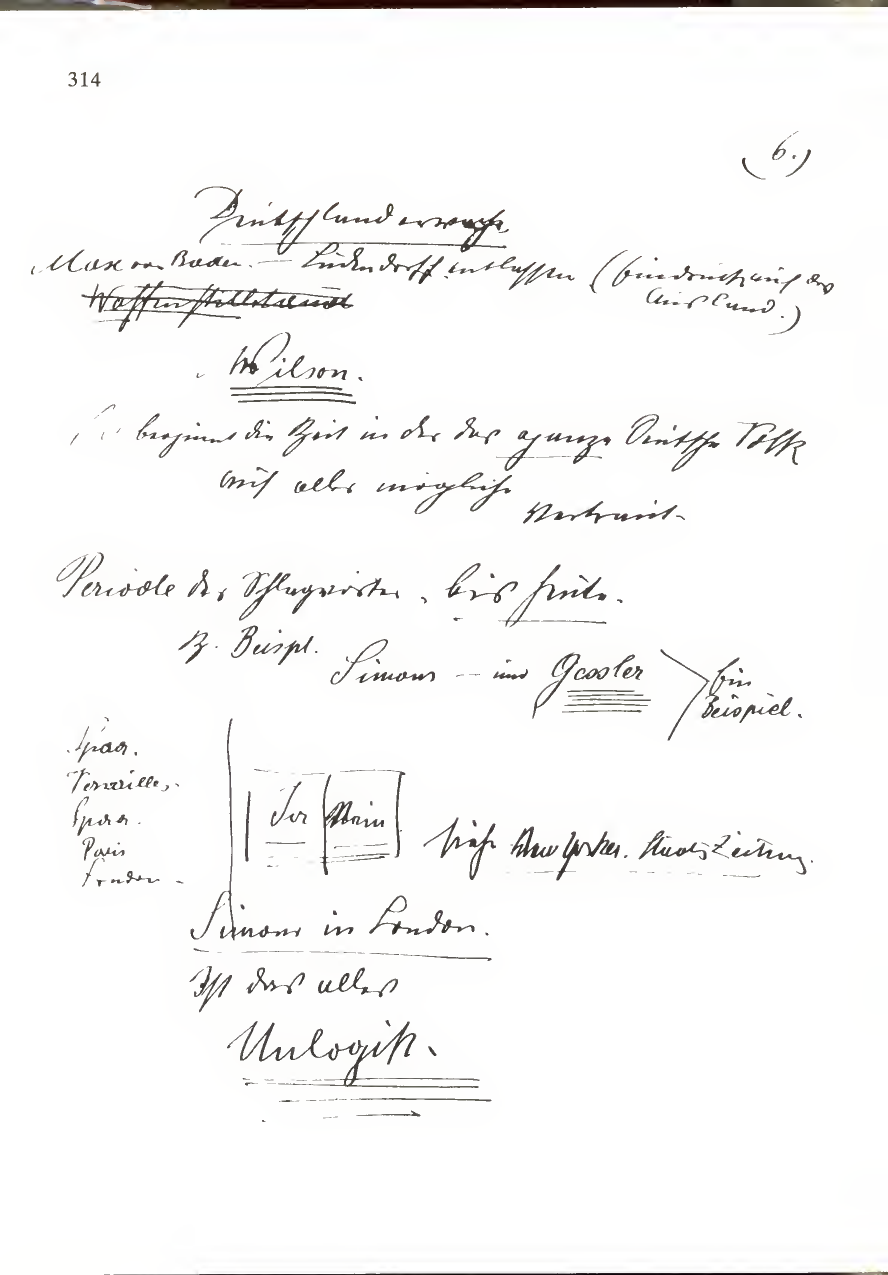 314
(6.)
Deutschland erwache
Max von Baden. — Ludendorff entlassen (Eindruck auf das
Ausland.)
Waffenstillstand
Wilson.
beginnt die Zeit in der das ganze Deutsche Volk
auf alles mögliche
vertraut-
Periode der Schlagwörter, bis heute.
Z. Beispl.
Simons — und Gessler
Ein
Beispiel.
Spaa.
Versailles.
Spaa.
Paris
London -
Ja Nein
Siehe New Yorker. Staats Zeitung.
Simons in London.
Ist das alles
Unlogik.